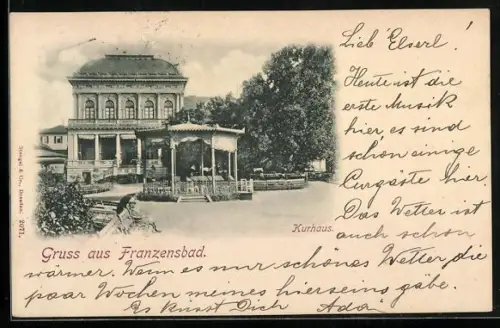 Lieb Elserl!
Heute ist die
erste Musik
hier, es sind
schon einige
Curgäste hier.
Das Wetter ist
auch schon
Kurhaus.
Stengel & Co., Dresden. 2071.
Gruss aus Franzensbad.
wärmer. Wenn es nur schönes Wetter die
paar Wochen meines hierseins gäbe.
Es küsst Dich Ada